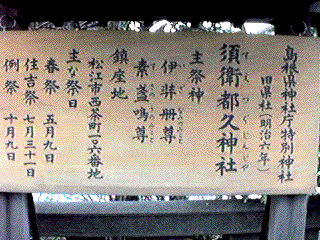 島根県神社庁特別神社
旧県社（明治六年）
須衛都久神社
すえつくじんじゃ
主祭神
伊弉冊尊
素盞嗚尊
鎮座地
松江市西茶町一〇六番地
主な祭日
春祭 五月九日
住吉祭 七月三十一日
例祭 十月九日